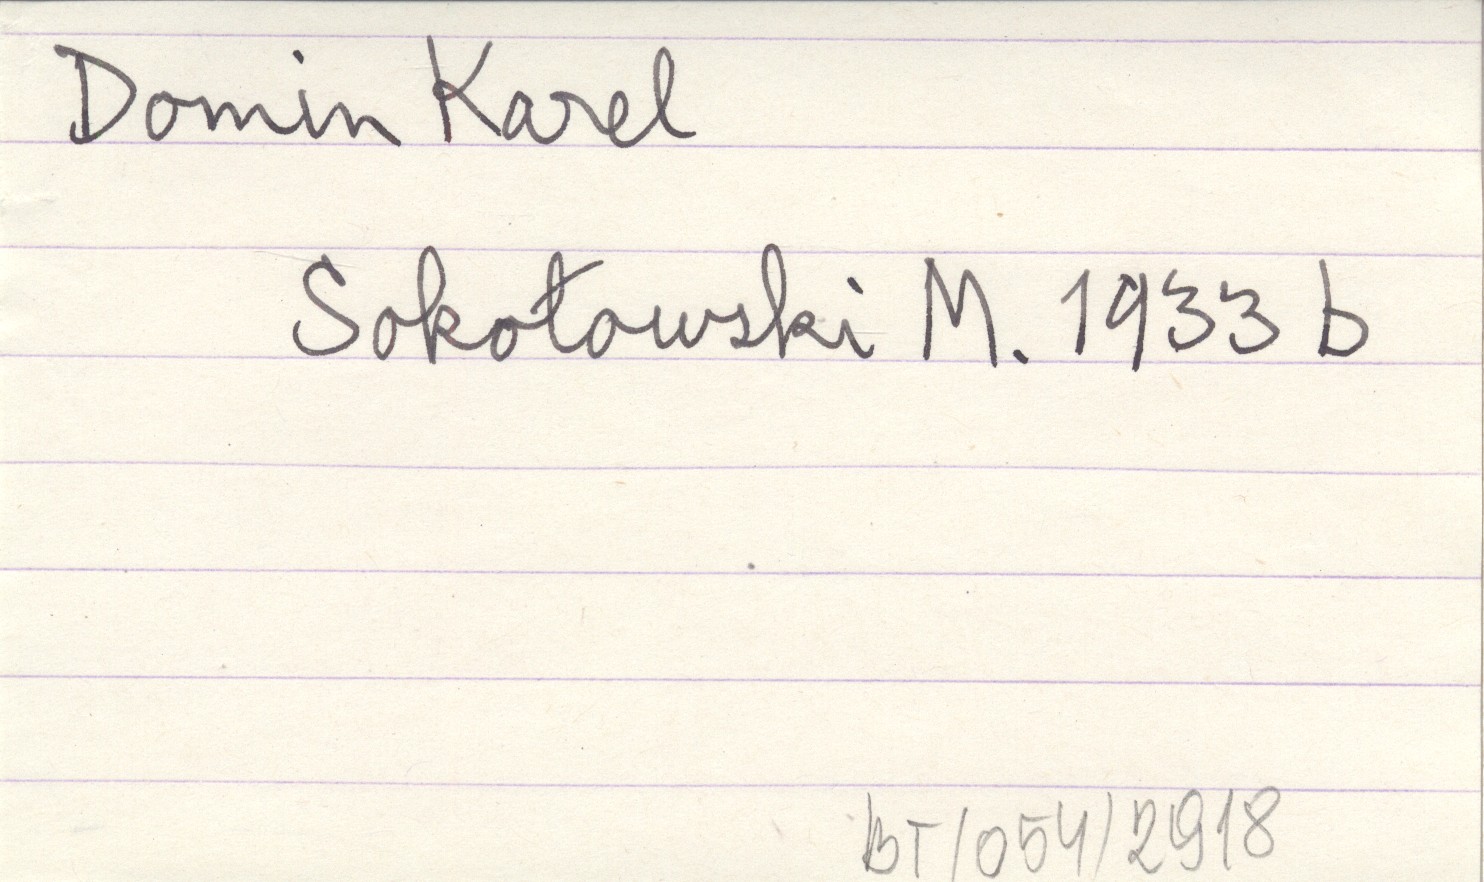 Domin Karel
Sokołowski M. 1933 b
BT/054/2918